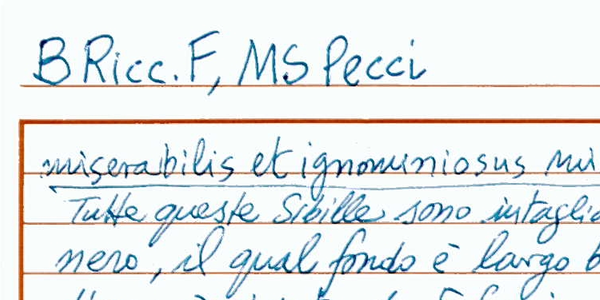 B Ricc. F, MS Pecci
miserabilis et ignominiosus
Tutte queste Sibille sono
nero, il qual fondo è largo